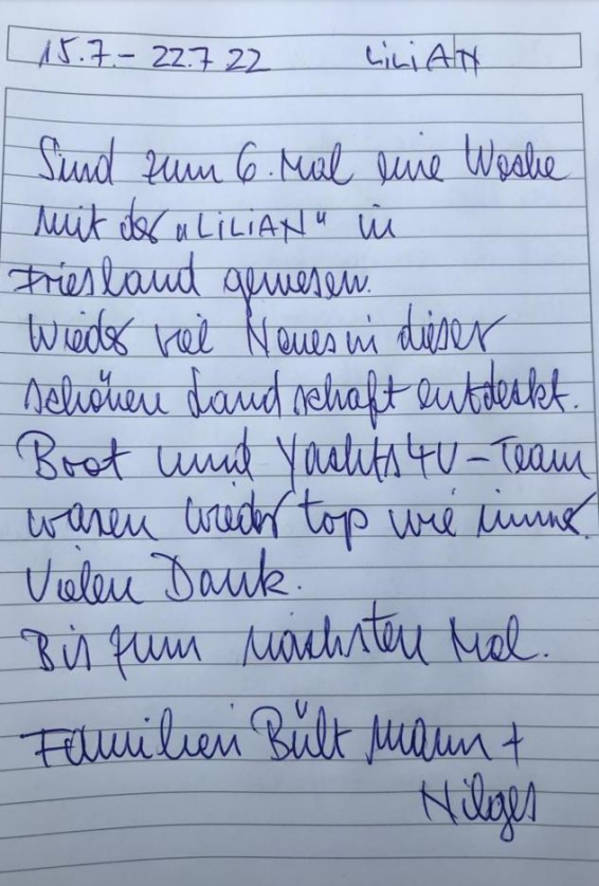 15.7.- 22.7.22 LiLiAN
Sind zum 6. Mal eine Woche
mit der „LiLiAN“ in
Friesland gewesen.
Wieder viel Neues in dieser
schönen Landschaft entdeckt.
Boot und Yachts4U-Team
waren wieder top wie immer.
Vielen Dank.
Bis zum nächsten Mal.
Familien Bültmann +
Nilges